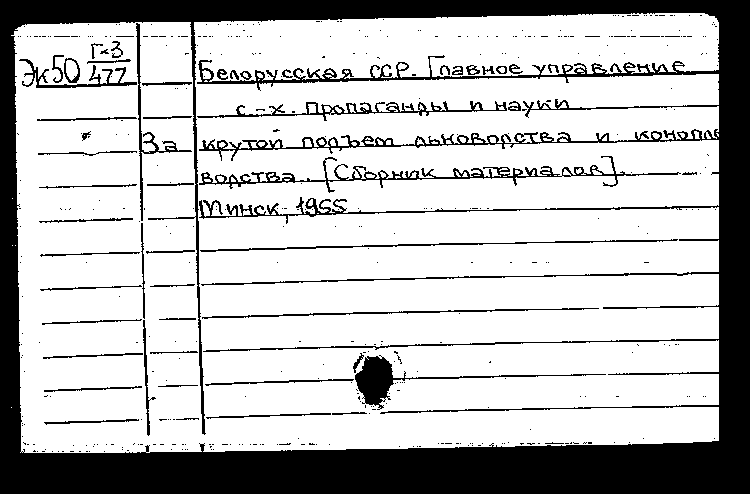 Эк50 Г-3/477 Белорусская ССР. Главное управление
с.-х. пропаганды и науки
За крутой подъем льноводства и конопле
водства. [Сборник материалов].
Минск, 1955.